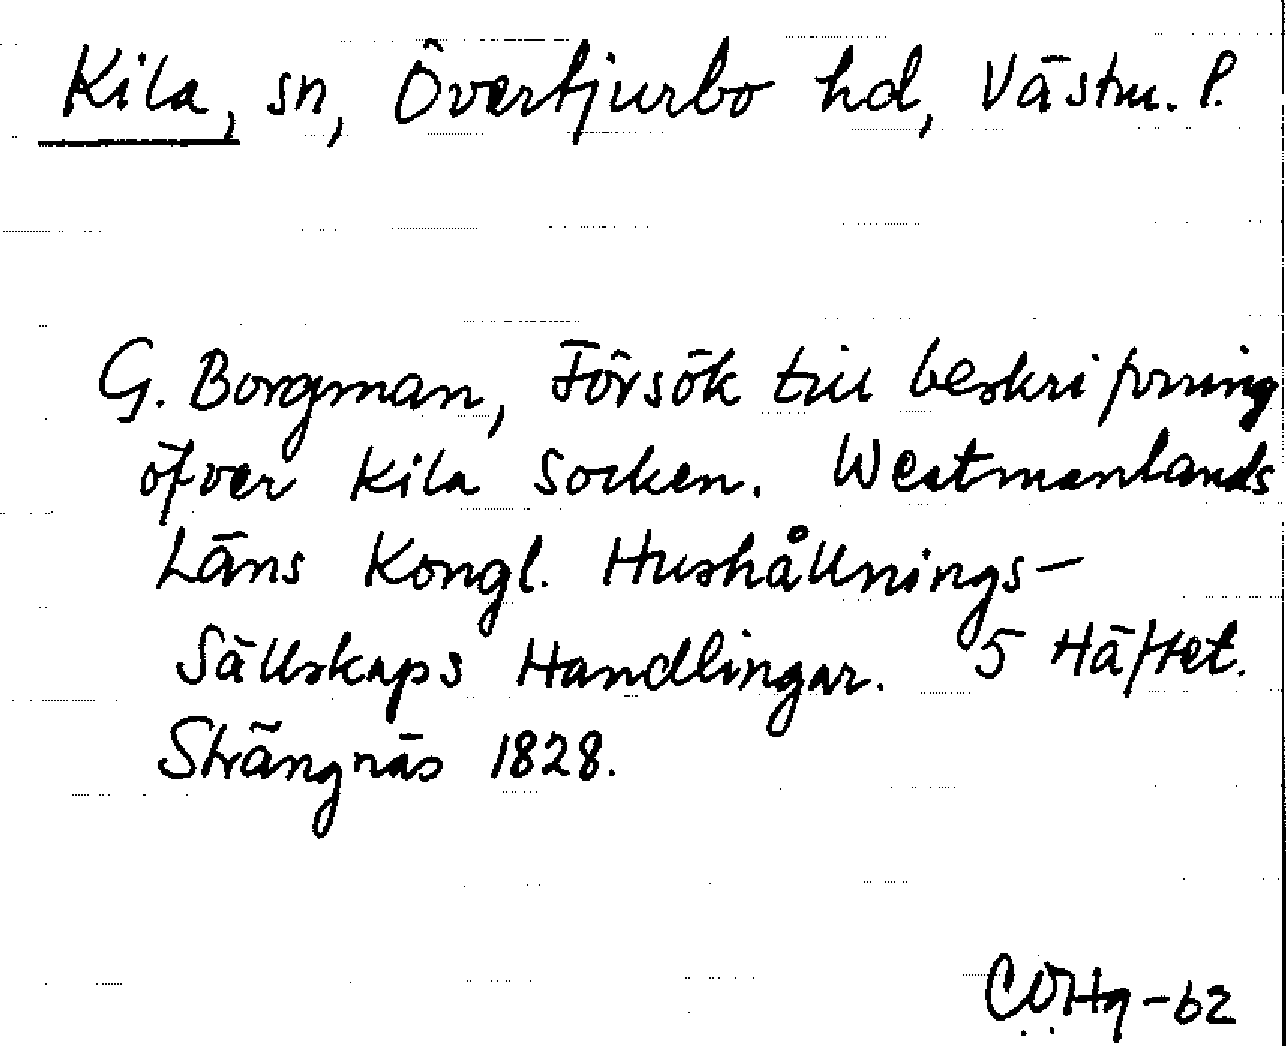 Kila, sn, Övertjurbo hd, Västm. l.
G. Borgman, Försök till beskrifvning
öfver Kila Socken. Westmanlands
Läns Kongl. Hushållnings-
Sällskaps Handlingar. 5 Häftet.
Strängnäs 1828.
CÖHg-62